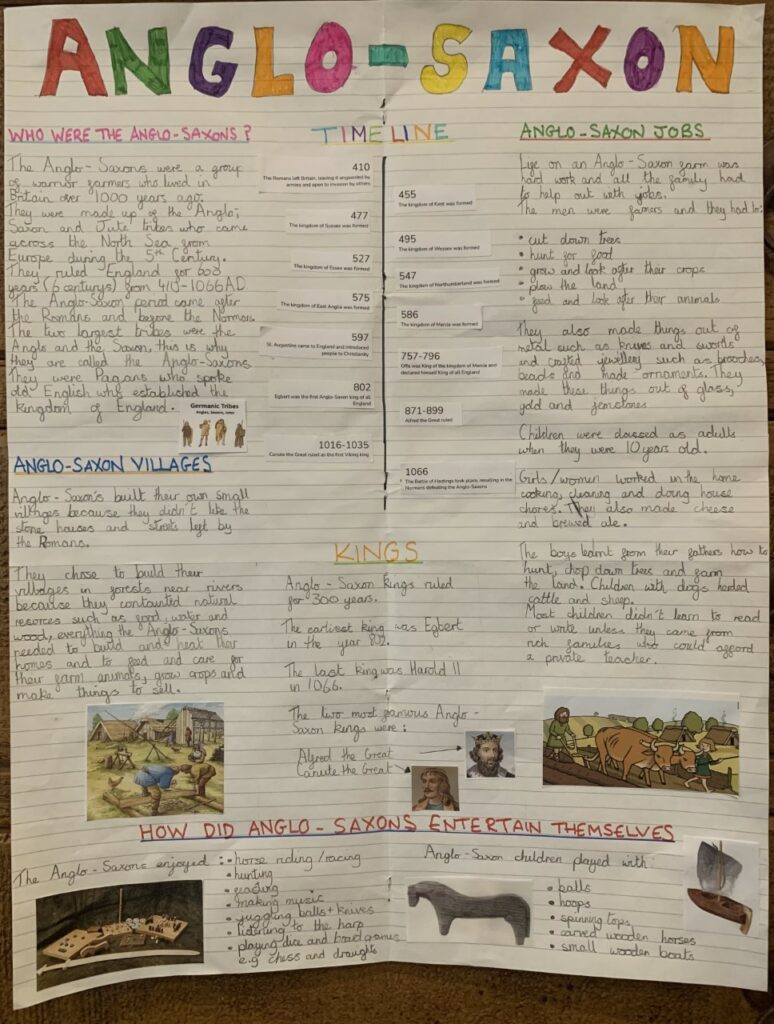 ANGLO-SAXON
WHO WERE THE ANGLO-SAXONS?
The Anglo-Saxons were a group
of warrior farmers who lived in
Britain over 1000 years ago.
They were made up of the Anglo,
Saxon and Jute tribes who came
across the North Sea from
Europe during the 5th Century.
They ruled England for 600
years (6 centurys) from 410-1066AD
The Anglo-Saxon period came after
the Romans and before the Normans.
The two largest tribes were the
Anglo and the Saxon, this is why
they are called the Anglo-Saxons.
They were Pagans who spoke
old English who established the
kingdom of England.
Germanic Tribes
Angles, Saxons, Jutes
ANGLO-SAXON VILLAGES
Anglo-Saxons built their own small
villages because they didn't like the
stone houses and streets left by
the Romans.
They chose to build their
villages in forests near rivers
because they contained natural
resorces such as food, water and
wood, everything the Anglo-Saxons
needed to build and heat their
homes and to feed and care for
their farm animals, grow crops and
make things to sell.
TIMELINE
410
The Romans left Britain, leaving it unguarded by
armies and open to invasion by others
455
The kingdom of Kent was formed
477
The kingdom of Sussex was formed
495
The kingdom of Wessex was formed
527
The kingdom of Essex was formed
547
The kingdom of Northumberland was formed
575
The kingdom of East Anglia was formed
586
The kingdom of Mercia was formed
597
St. Augustine came to England and introduced
people to Christianity
757-796
Offa was King of the kingdom of Mercia and
declared himself King of all England
802
Egbert was the first Anglo-Saxon king of all
England
871-899
Alfred the Great ruled
1016-1035
Canute the Great ruled as the first Viking king
1066
The Battle of Hastings took place, resulting in the
Normans defeating the Anglo-Saxons
KINGS
Anglo-Saxon kings ruled
for 300 years.
The earliest king was Egbert
in the year 802.
The last king was Harold II
in 1066.
The two most famous Anglo-
Saxon kings were:
Alfred the Great
Canute the Great
ANGLO-SAXON JOBS
Life on an Anglo-Saxon farm was
hard work and all the family had
to help out with jobs.
The men were farmers and they had to:
• cut down trees
• hunt for food
• grow and look after their crops
• plow the land
• feed and look after their animals
They also made things out of
metal such as knives and swords
and crafted jewellery such as brooches,
beads and made ornaments. They
made these things out of glass,
gold and jemstones
Children were classed as adults
when they were 10 years old.
Girls/women worked in the home
cooking, cleaning and doing house
chores. They also made cheese
and brewed ale.
The boys learnt from their fathers how to
hunt, chop down trees and farm
the land. Children with dogs herded
cattle and sheep.
Most children didn't learn to read
or write unless they came from
rich families who could afford
a private teacher.
HOW DID ANGLO-SAXONS ENTERTAIN THEMSELVES
The Anglo-Saxons enjoyed:
• horse riding/racing
• hunting
• feasting
• making music
• juggling balls + knives
• listening to the harp
• playing dice and board games
e.g chess and draughts
Anglo-Saxon children played with:
• balls
• hoops
• spinning tops
• carved wooden horses
• small wooden boats